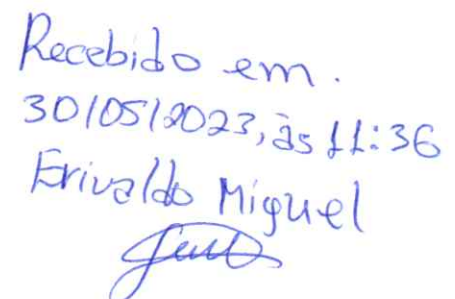 Recebido em.
30/05/2023, às 11:36
Erivaldo Miguel